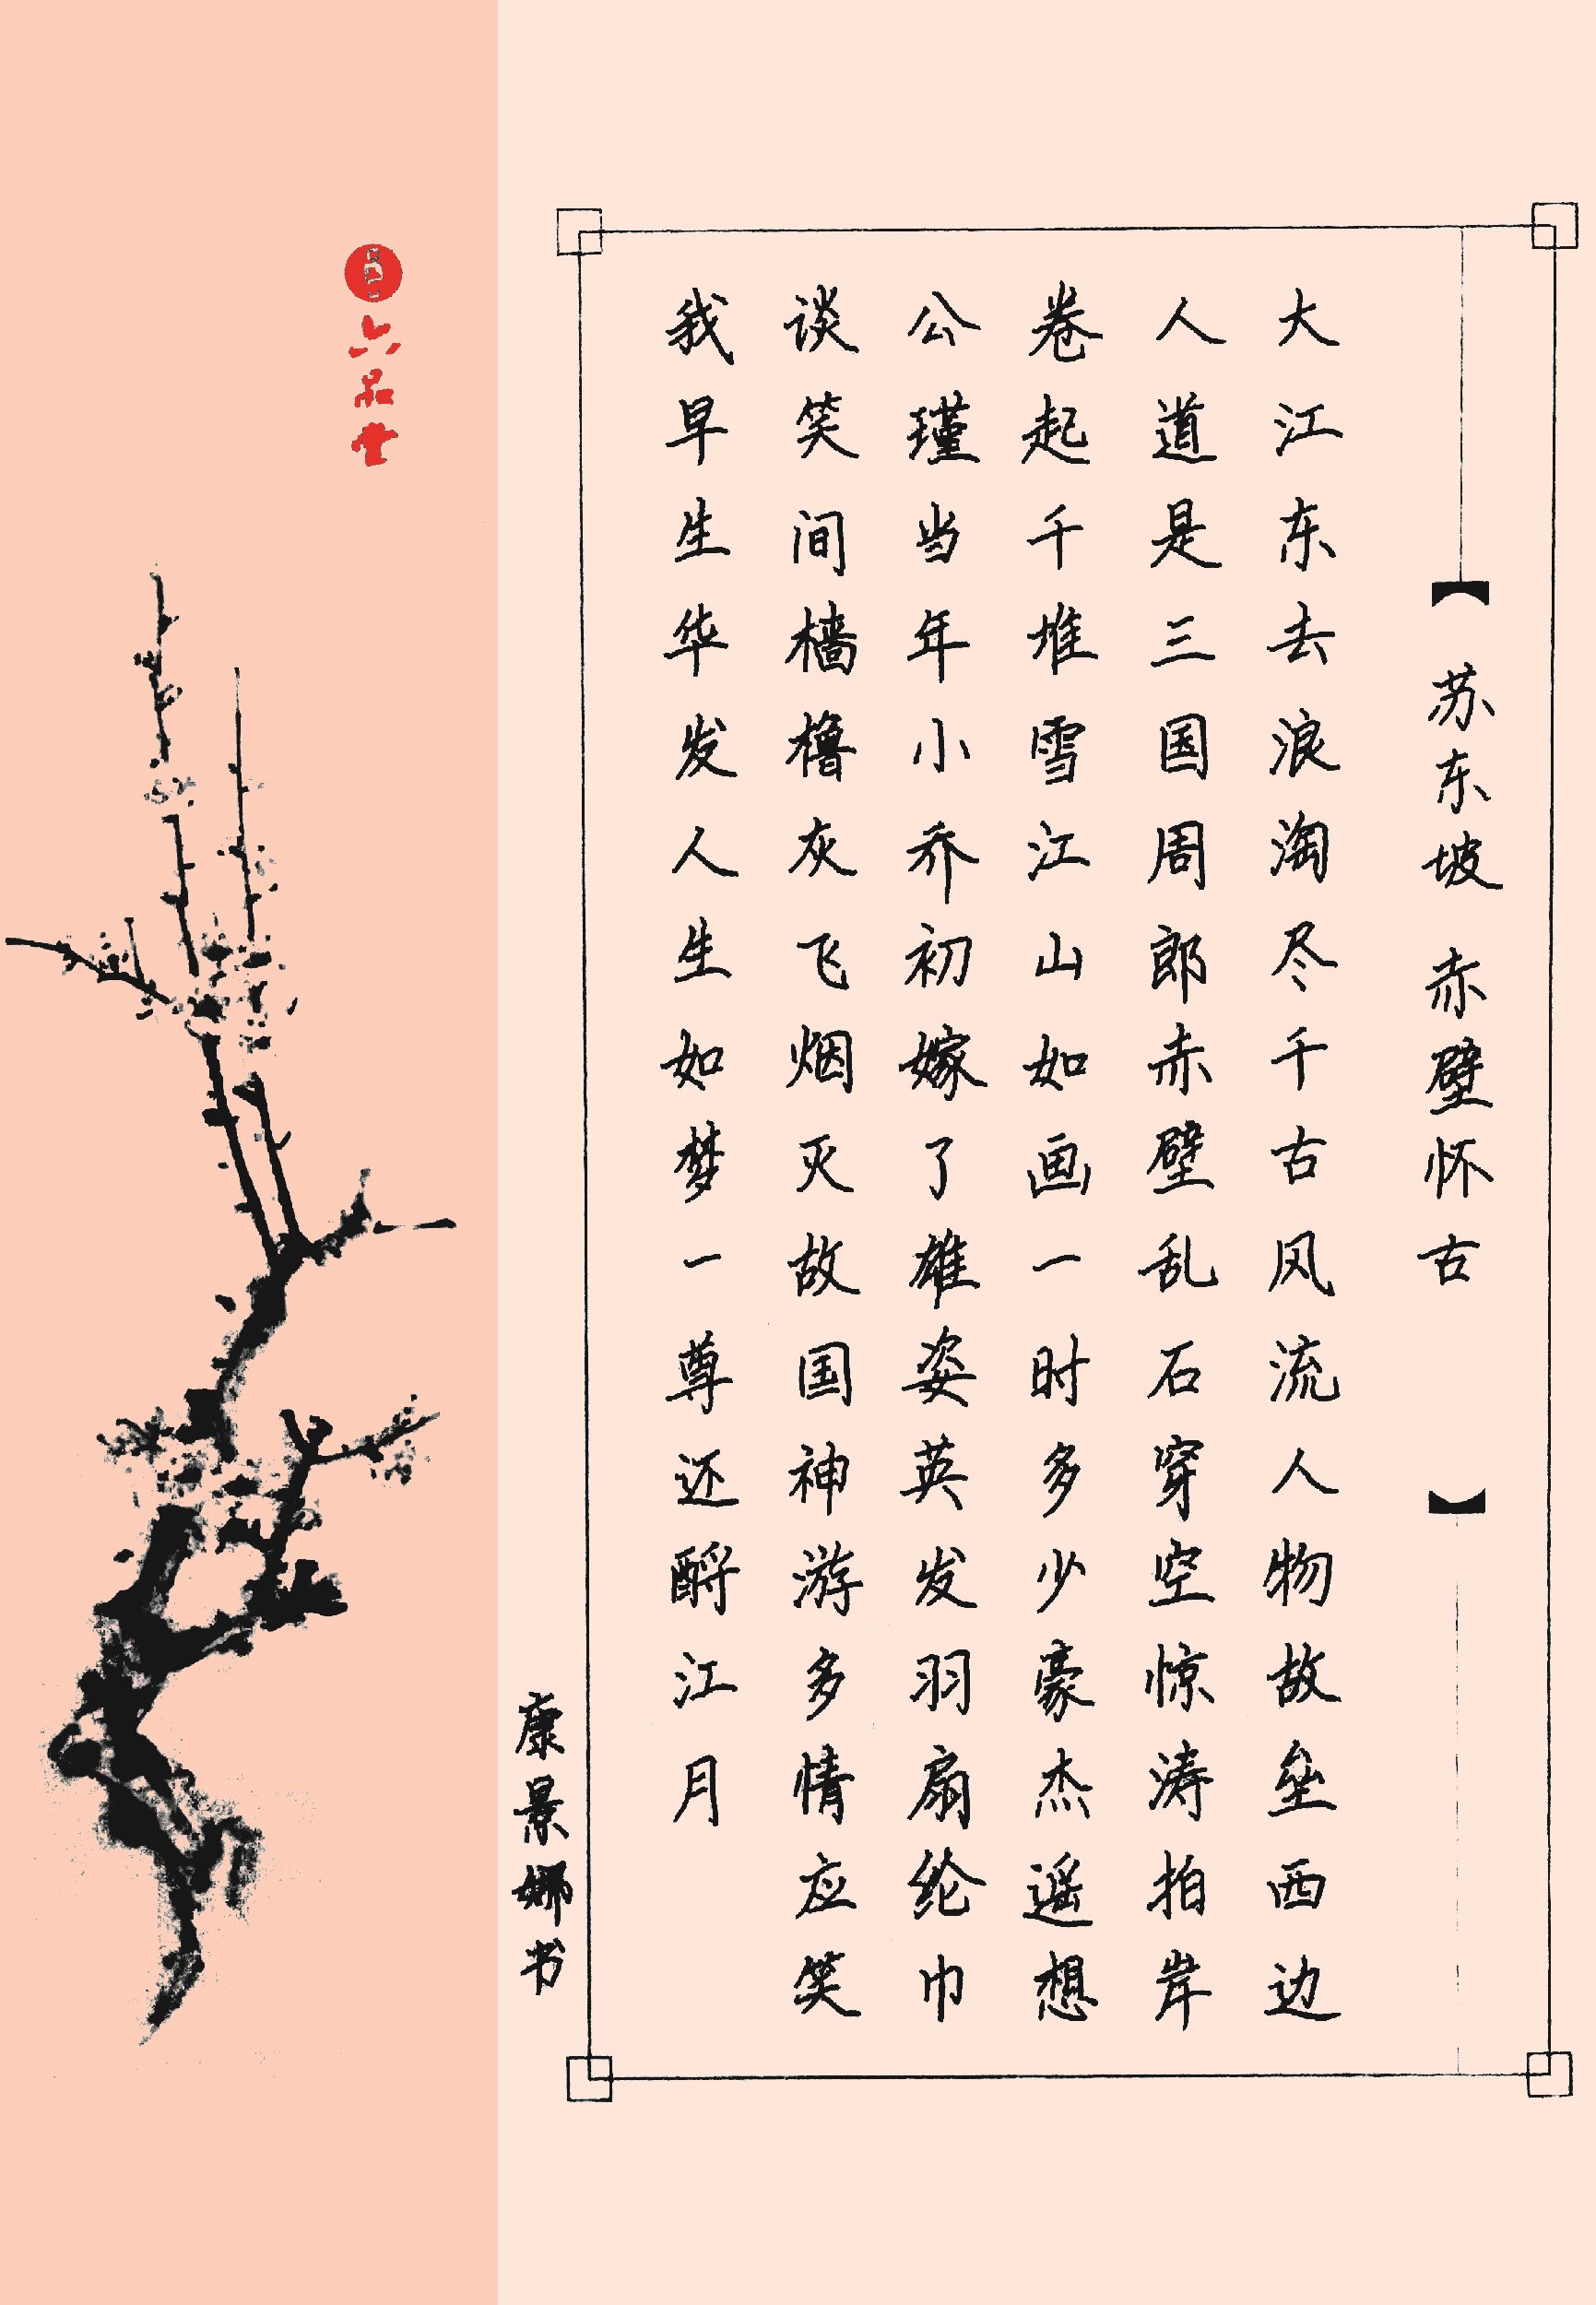 苏东坡 赤壁怀古
大江东去浪淘尽千古风流人物故垒西边
人道是三国周郎赤壁乱石穿空惊涛拍岸
卷起千堆雪江山如画一时多少豪杰遥想
公瑾当年小乔初嫁了雄姿英发羽扇纶巾
谈笑间樯橹灰飞烟灭故国神游多情应笑
我早生华发人生如梦一尊还酹江月
康景娜书
六品堂